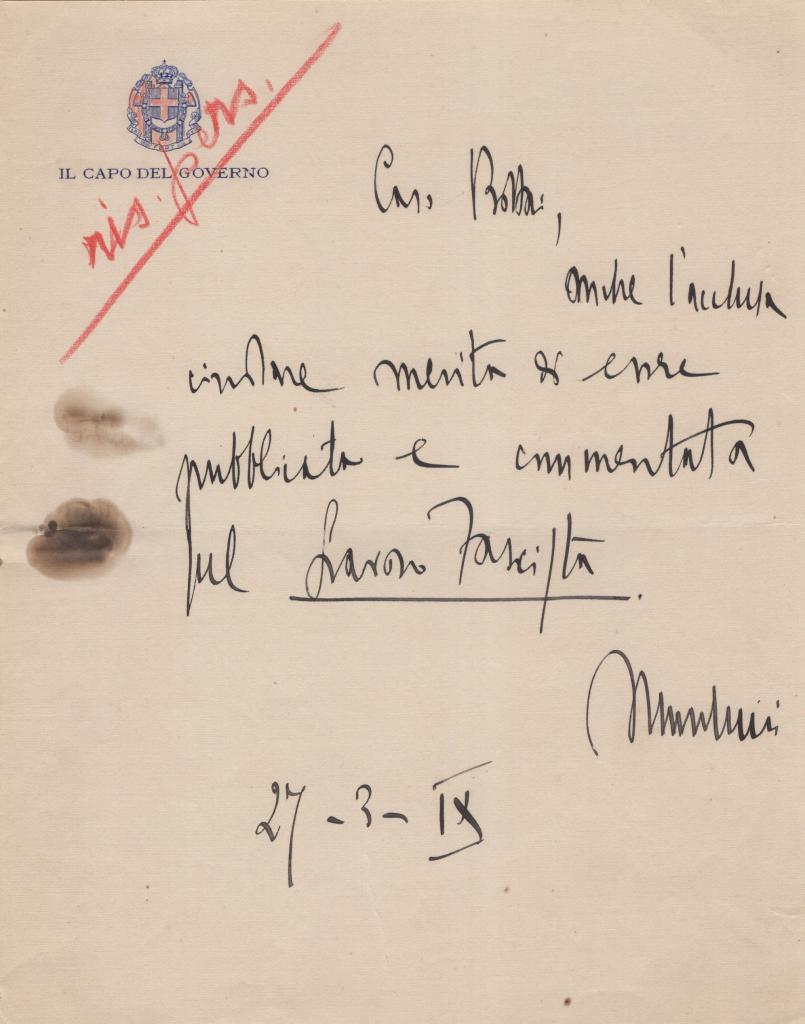 IL CAPO DEL GOVERNO
ris. pers.
Caro Bottai,
anche l'acclusa
circolare merita di essere
pubblicata e commentata
sul Lavoro Fascista.
Mussolini
27-3-IX